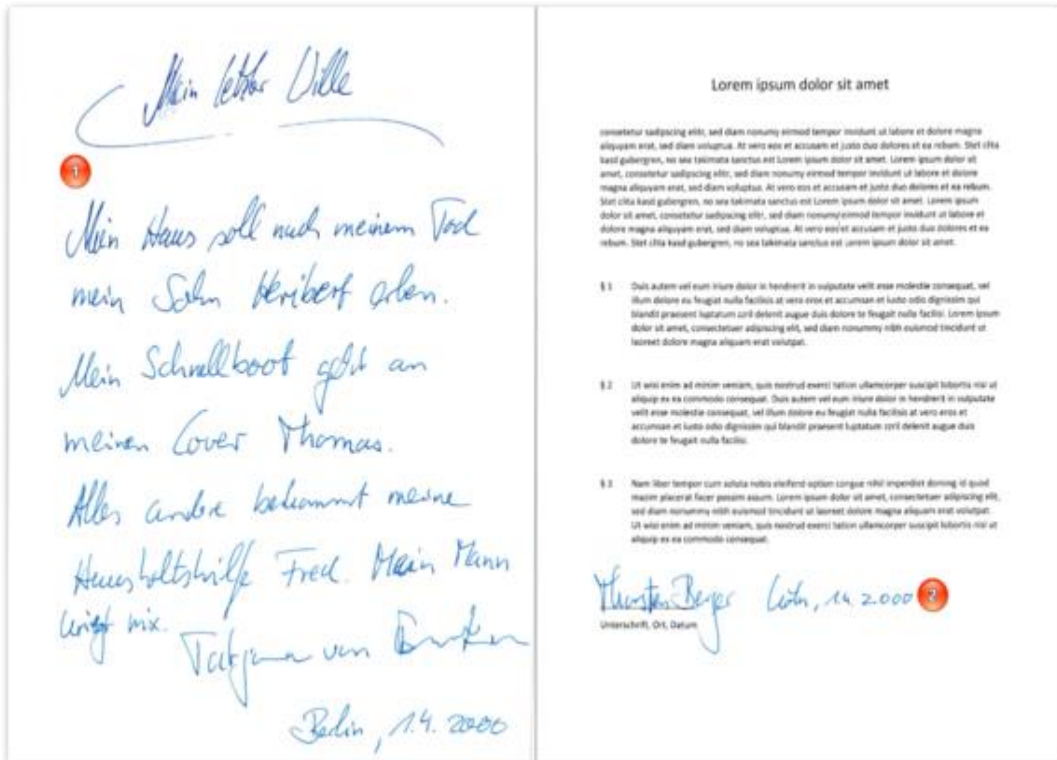 Mein letzter Wille
1
Mein Haus soll nach meinem Tod
mein Sohn Heribert erben.
Mein Schnellboot geht an
meinen Lover Thomas.
Alles andere bekommt meine
Haushaltshilfe Fred. Mein Mann
kriegt nix.
Tatjana von
Berlin, 1.4.2000
Lorem ipsum dolor sit amet
consetetur sadipscing elitr, sed diam nonumy eirmod tempor invidunt ut labore et dolore magna
aliquyam erat, sed diam voluptua. At vero eos et accusam et justo duo dolores et ea rebum. Stet clita
kasd gubergren, no sea takimata sanctus est Lorem ipsum dolor sit amet. Lorem ipsum dolor sit
amet, consetetur sadipscing elitr, sed diam nonumy eirmod tempor invidunt ut labore et dolore
magna aliquyam erat, sed diam voluptua. At vero eos et accusam et justo duo dolores et ea rebum.
Stet clita kasd gubergren, no sea takimata sanctus est Lorem ipsum dolor sit amet. Lorem ipsum
dolor sit amet, consetetur sadipscing elitr, sed diam nonumy eirmod tempor invidunt ut labore et
dolore magna aliquyam erat, sed diam voluptua. At vero eos et accusam et justo duo dolores et ea
rebum. Stet clita kasd gubergren, no sea takimata sanctus est Lorem ipsum dolor sit amet.
§ 1 Duis autem vel eum iriure dolor in hendrerit in vulputate velit esse molestie consequat, vel
illum dolore eu feugiat nulla facilisis at vero eros et accumsan et iusto odio dignissim qui
blandit praesent luptatum zzril delenit augue duis dolore te feugait nulla facilisi. Lorem ipsum
dolor sit amet, consectetuer adipiscing elit, sed diam nonummy nibh euismod tincidunt ut
laoreet dolore magna aliquam erat volutpat.
§ 2 Ut wisi enim ad minim veniam, quis nostrud exerci tation ullamcorper suscipit lobortis nisl ut
aliquip ex ea commodo consequat. Duis autem vel eum iriure dolor in hendrerit in vulputate
velit esse molestie consequat, vel illum dolore eu feugiat nulla facilisis at vero eros et
accumsan et iusto odio dignissim qui blandit praesent luptatum zzril delenit augue duis
dolore te feugait nulla facilisi.
§ 3 Nam liber tempor cum soluta nobis eleifend option congue nihil imperdiet doming id quod
mazim placerat facer possim assum. Lorem ipsum dolor sit amet, consectetuer adipiscing elit,
sed diam nonummy nibh euismod tincidunt ut laoreet dolore magna aliquam erat volutpat.
Ut wisi enim ad minim veniam, quis nostrud exerci tation ullamcorper suscipit lobortis nisl ut
aliquip ex ea commodo consequat.
Thorsten Berger Cöln, 1.4.2000 2
Unterschrift, Ort, Datum